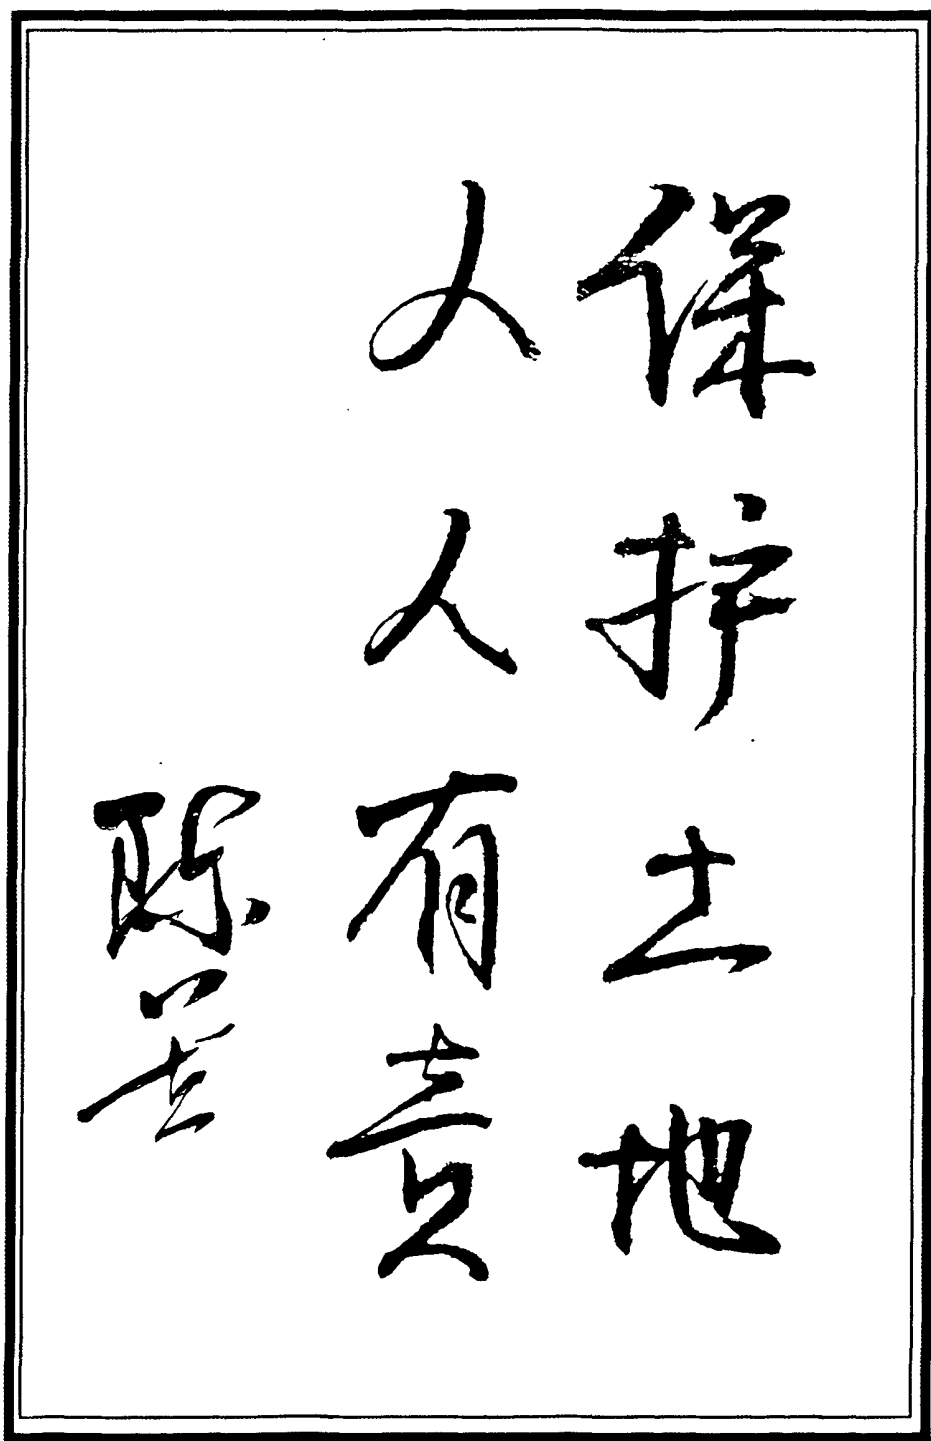 保护土地
人人有责
陈